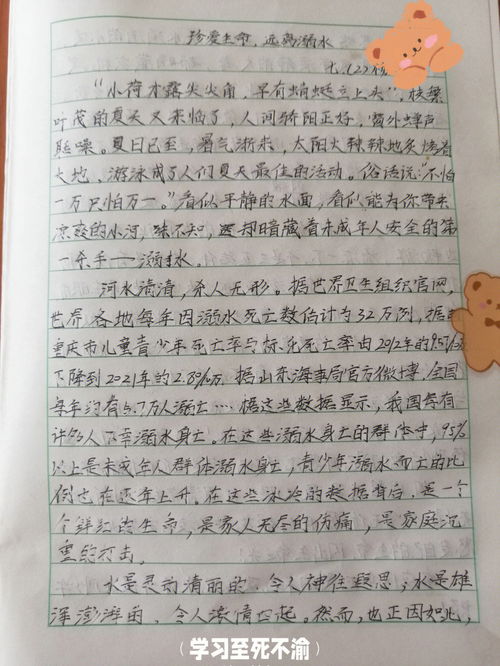 珍爱生命，远离溺水
七.(2)
“小荷才露尖尖角，早有蜻蜓立上头”，枝繁
叶茂的夏天又来临了，人间骄阳正好，窗外蝉声
聒噪。夏日已至，暑气渐来，太阳火辣辣地炙烤着
大地、游泳成了人们夏天最佳的活动。俗话说：“不怕
一万只怕万一。”看似平静的水面，看似能为你带来
凉爽的小河，殊不知，却暗藏着未成年人安全的第
一杀手——溺水。
河水清清，杀人无形。据世界卫生组织官网，
世界各地每年因溺水死亡数估计为32万例，据
重庆市儿童青少年死亡率与标化死亡率由2012年的9.5%
下降到2021年的2.8%万。据山东海事局官方微博，全国
每年约有5.7万人溺亡…据这些数据显示，我国每有
许多人下幸溺水身亡。在这些溺水身亡的群体中，95%
以上是未成年人群体溺水身亡，青少年溺水而亡的比
例也在逐年上升。在这些冰冷的数据背后，是一个
个鲜红的生命，是家人无尽的伤痛，是家庭沉
重的打击。
水是灵动清丽的，令人神往遐思；水是雄
浑澎湃的，令人激情起。然而，也正因如此，
（学习至死不渝）